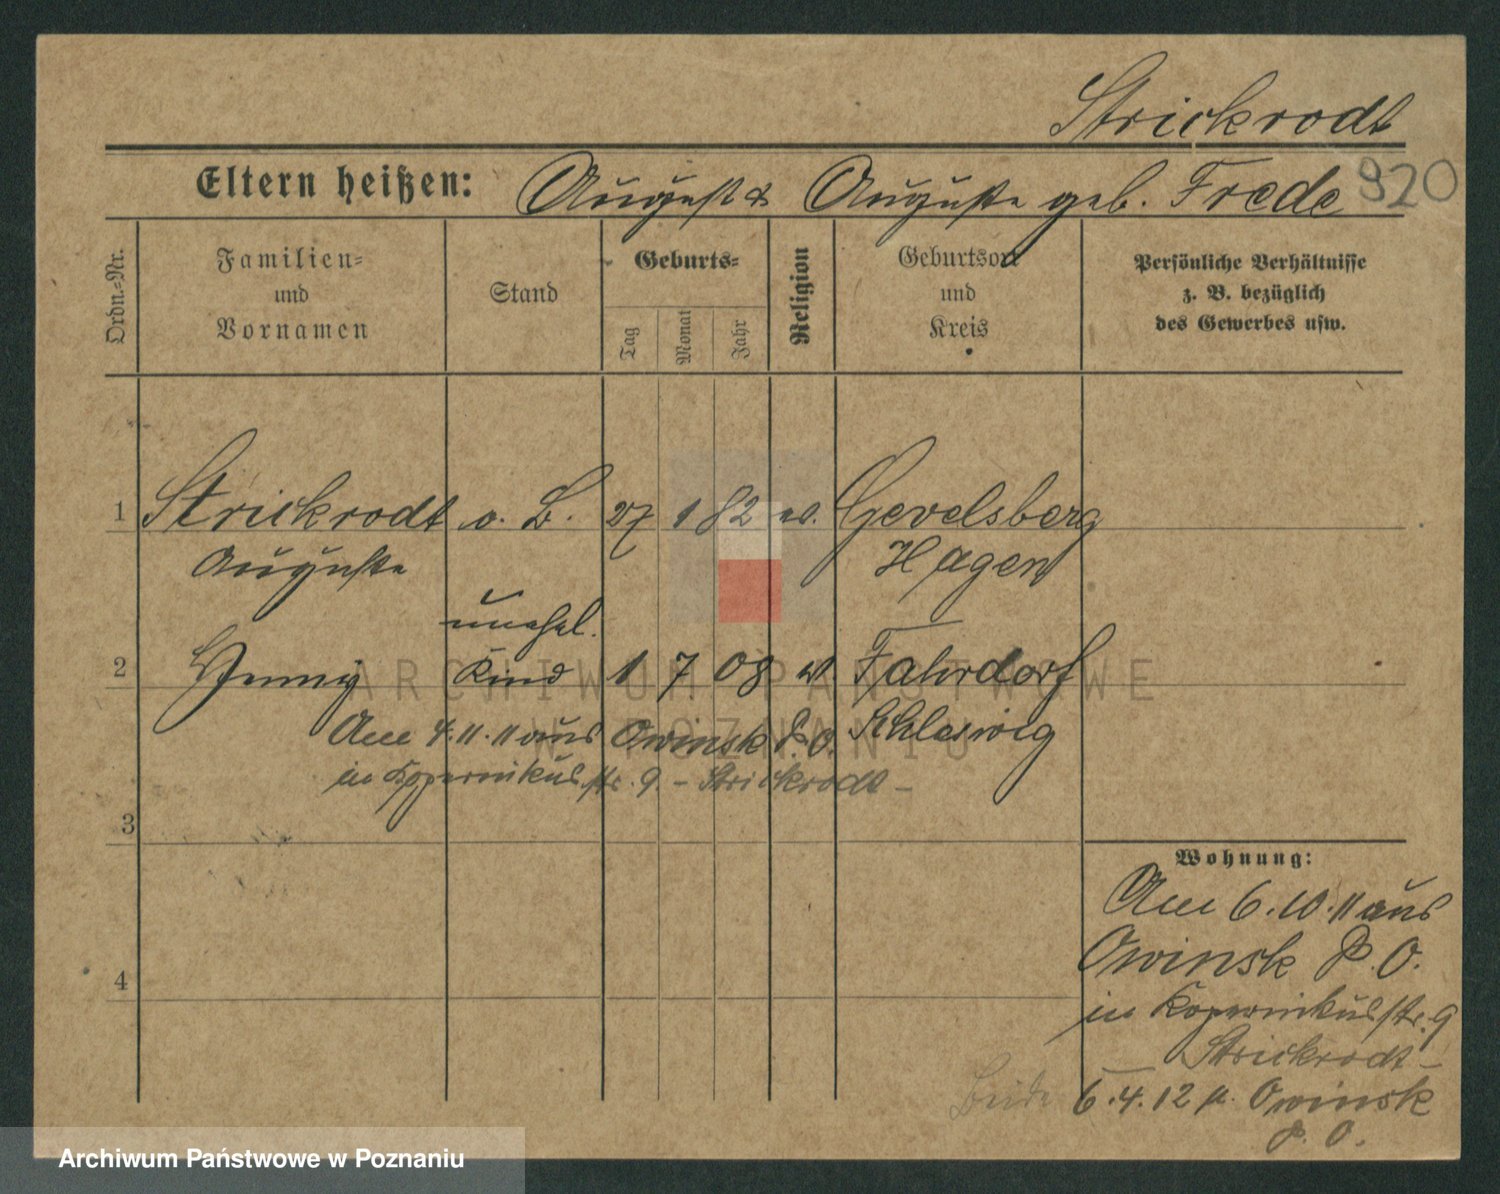 Strickrodt
920
Eltern heißen: August & Auguste geb. Frede
Ordn.=Nr.
Familien=
und
Vornamen
Stand
Geburts=
Tag
Monat
Jahr
Religion
Geburtsort
und
Kreis
Persönliche Verhältnisse
z. B. bezüglich
des Gewerbes usw.
1 Strickrodt o. B. 27 1 82 ev. Gevelsberg
Auguste Hagen
unehel.
2 Henny Kind 1 7 08 ev. Fahrdorf
Schleswig
Am 4.11.11 aus Owinsk P. O.
in Kopernikusstr. 9 - Strickrodt -
3
Wohnung:
Am 6.10.11 aus
Owinsk P. O.
in Kopernikusstr. 9
- Strickrodt -
4
Beide 6.4.12 n. Owinsk
P. O.
ARCHIWUM PAŃSTWOWE
W POZNANIU
Archiwum Państwowe w Poznaniu